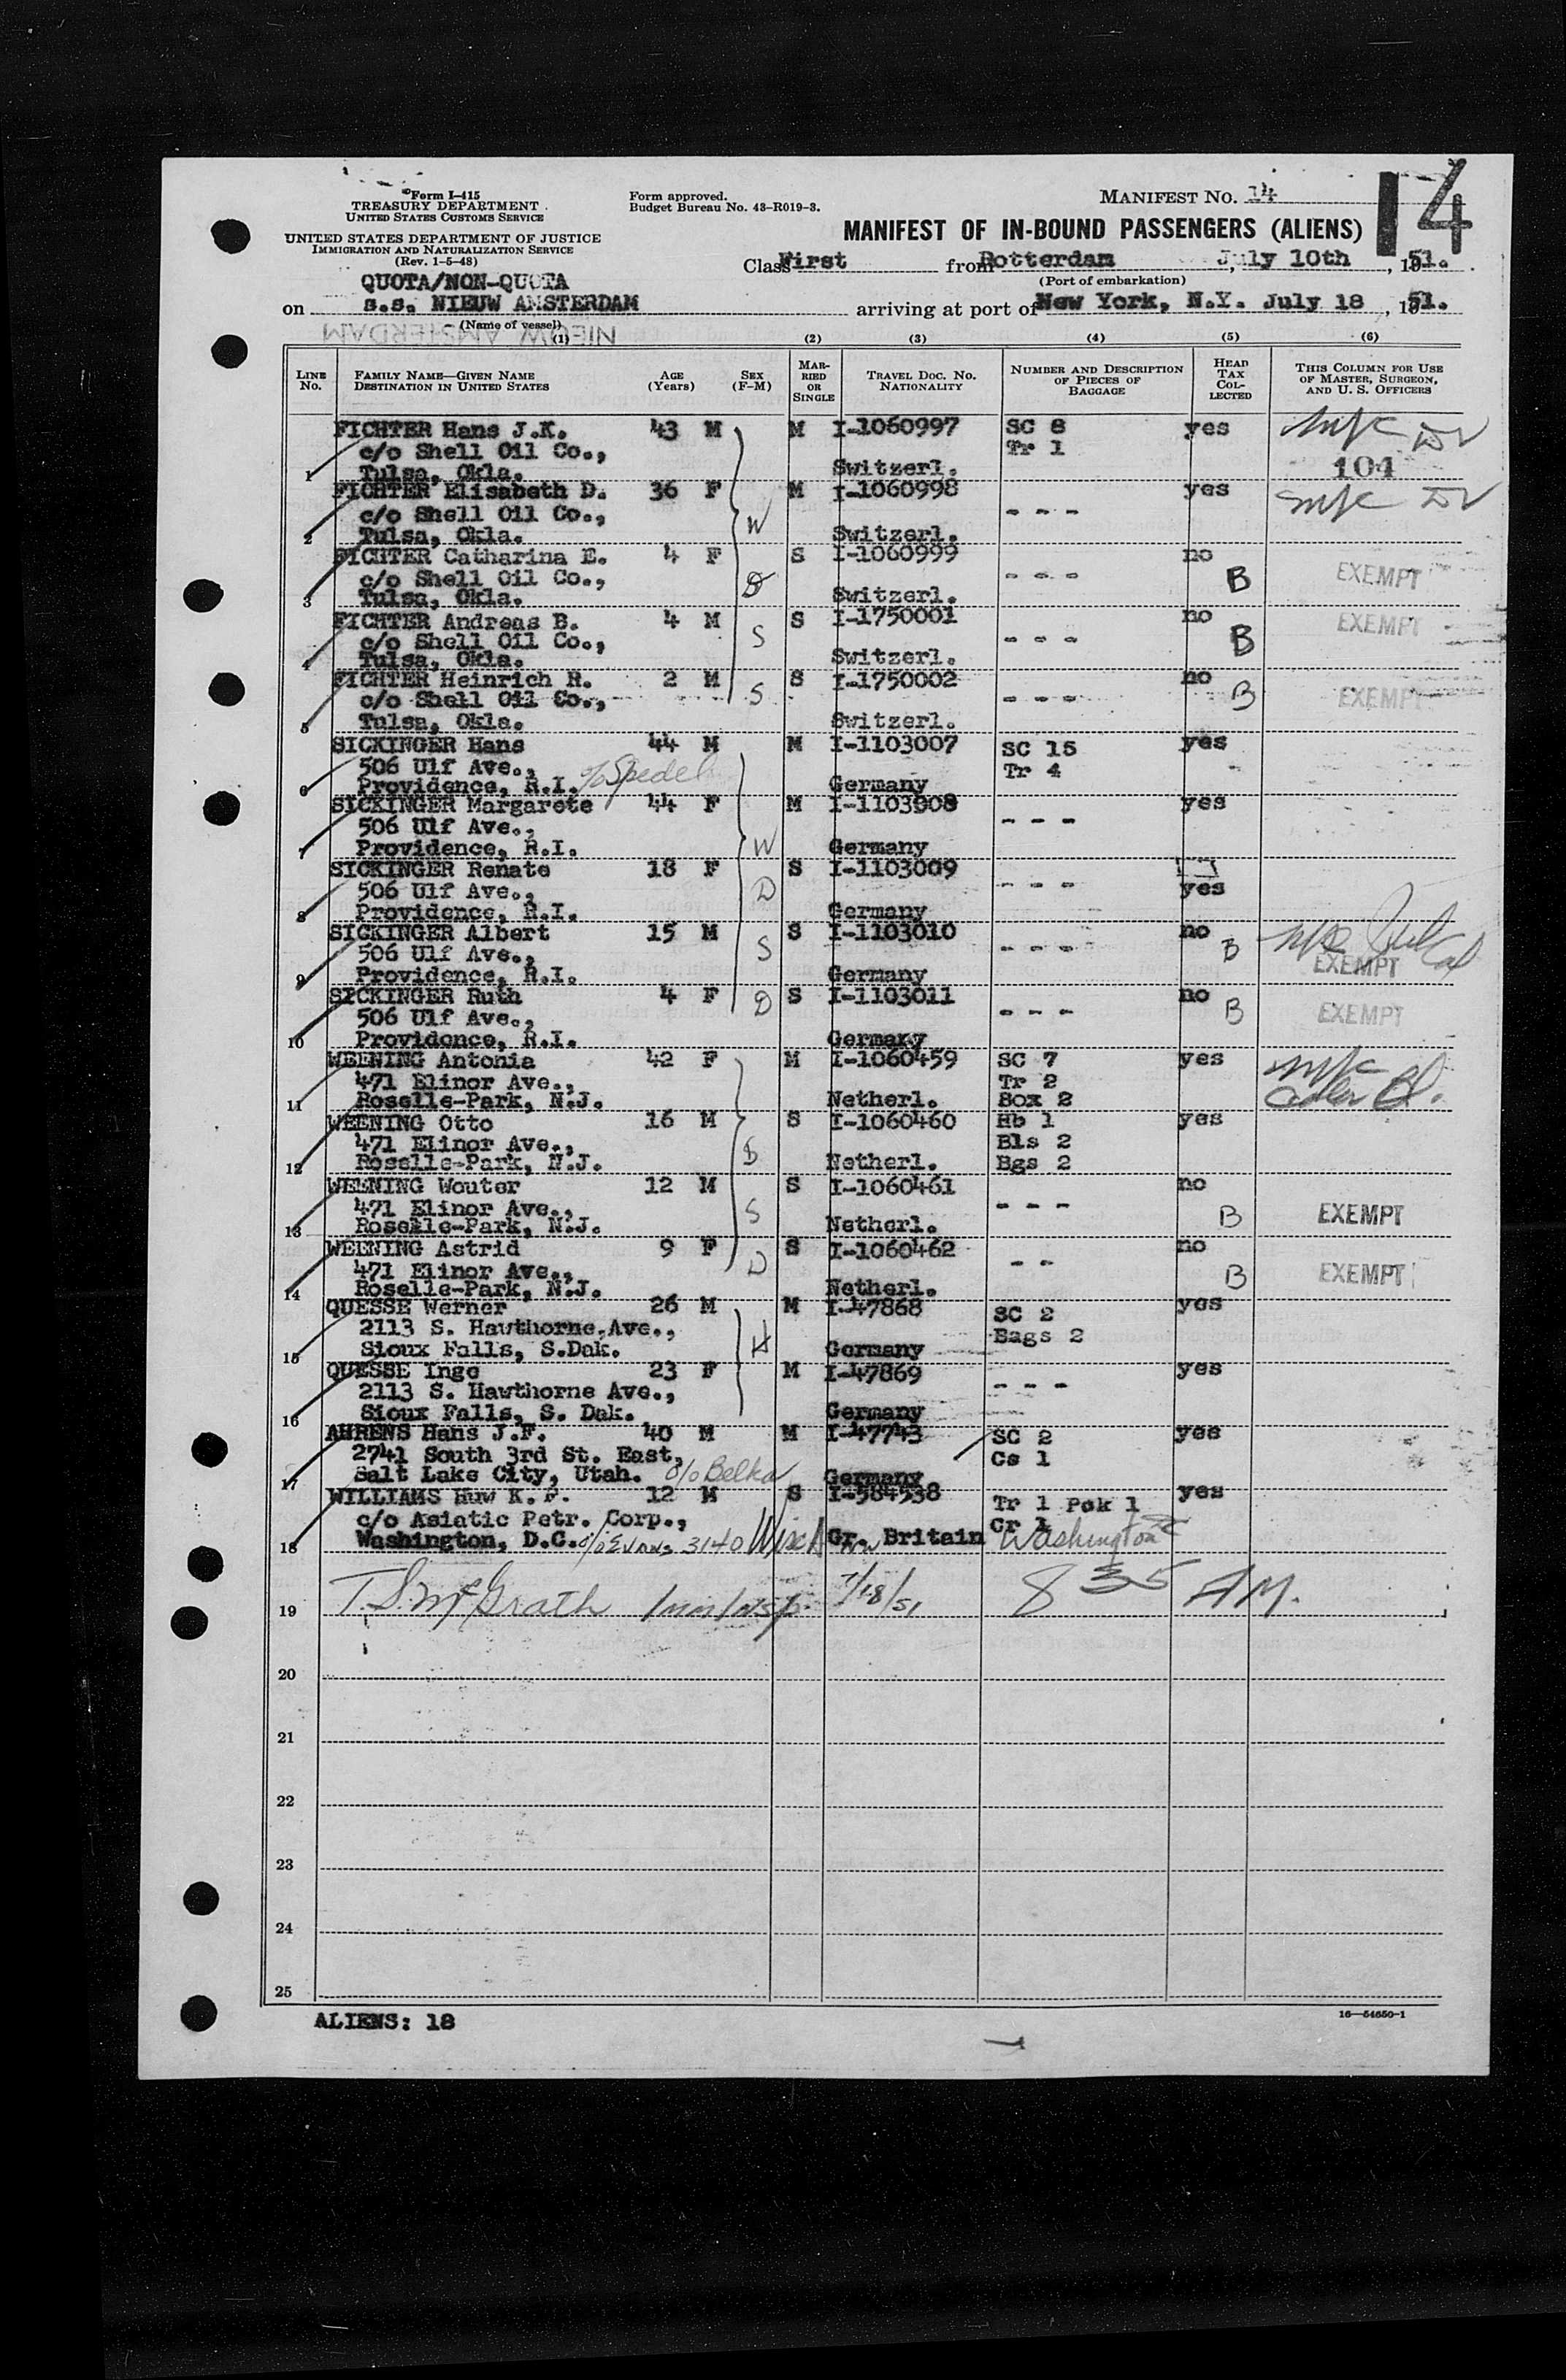 Form I-415
TREASURY DEPARTMENT
UNITED STATES CUSTOMS SERVICE
UNITED STATES DEPARTMENT OF JUSTICE
IMMIGRATION AND NATURALIZATION SERVICE
(Rev. 1-5-48)
Form approved.
Budget Bureau No. 43-R019-3.
MANIFEST No. 14
14
MANIFEST OF IN-BOUND PASSENGERS (ALIENS)
Class First from Rotterdam July 10th, 1951.
(Port of embarkation)
QUOTA/NON-QUOTA
on s.s. NIEUW AMSTERDAM arriving at port of New York, N.Y. July 18, 1951.
(Name of vessel)
NIEUW AMSTERDAM
(1) (2) (3) (4) (5) (6)
LINE No. FAMILY NAME—GIVEN NAME DESTINATION IN UNITED STATES AGE (Years) SEX (F-M) MARRIED OR SINGLE TRAVEL DOC. NO. NATIONALITY NUMBER AND DESCRIPTION OF PIECES OF BAGGAGE HEAD TAX COLLECTED THIS COLUMN FOR USE OF MASTER, SURGEON, AND U. S. OFFICERS
FICHTER Hans J.K. 43 M M I-1060997 SC 8 yes
c/o Shell Oil Co., Tr 1
1 Tulsa, Okla. Switzerl. 104
FICHTER Elisabeth D. 36 F M I-1060998 yes
c/o Shell Oil Co., W - - -
2 Tulsa, Okla. Switzerl.
FICHTER Catharina E. 4 F S I-1060999 no
c/o Shell Oil Co., D - - - B EXEMPT
3 Tulsa, Okla. Switzerl.
FICHTER Andreas B. 4 M S I-1750001 no EXEMPT
c/o Shell Oil Co., S - - - B
4 Tulsa, Okla. Switzerl.
FICHTER Heinrich R. 2 M S I-1750002 no
c/o Shell Oil Co., S - - - B EXEMPT
5 Tulsa, Okla. Switzerl.
SICKINGER Hans 44 M M I-1103007 SC 15 yes
506 Ulf Ave., c/o Spedel Tr 4
6 Providence, R.I. Germany
SICKINGER Margarete 44 F M I-1103008 yes
506 Ulf Ave., - - -
7 Providence, R.I. W Germany
SICKINGER Renate 18 F S I-1103009
506 Ulf Ave., D - - - yes
8 Providence, R.I. Germany
SICKINGER Albert 15 M S I-1103010 no
506 Ulf Ave., S - - - B EXEMPT
9 Providence, R.I. Germany
SICKINGER Ruth 4 F D S I-1103011 no
506 Ulf Ave., - - - B EXEMPT
10 Providence, R.I. Germany
WEENING Antonia 42 F M I-1060459 SC 7 yes
471 Elinor Ave., Tr 2
11 Roselle-Park, N.J. Netherl. Box 2
WEENING Otto 16 M S I-1060460 Hb 1 yes
471 Elinor Ave., Bls 2
12 Roselle-Park, N.J. Netherl. Bgs 2
WEENING Wouter 12 M S I-1060461 no
471 Elinor Ave., S - - - B EXEMPT
13 Roselle-Park, N.J. Netherl.
WEENING Astrid 9 F S I-1060462 no
471 Elinor Ave., D - - B EXEMPT
14 Roselle-Park, N.J. Netherl.
QUESSE Werner 26 M M I-47868 SC 2 yes
2113 S. Hawthorne Ave., H Bags 2
15 Sioux Falls, S.Dak. Germany
QUESSE Inge 23 F M I-47869 yes
2113 S. Hawthorne Ave., - - -
16 Sioux Falls, S. Dak. Germany
AHRENS Hans J.F. 40 M M I-47743 SC 2 yes
2741 South 3rd St. East, Cs 1
17 Salt Lake City, Utah. c/o Belka Germany
WILLIAMS Huw K. P. 12 M S I-584538 Tr 1 Pek 1 yes
c/o Asiatic Petr. Corp., Cr 1
18 Washington, D.C. c/o Evans 3140 Gr. Britain Washington
19 T.S. McGrath 7/18/51 8 35 AM.
20
21
22
23
24
25
ALIENS: 18
16—54650-1